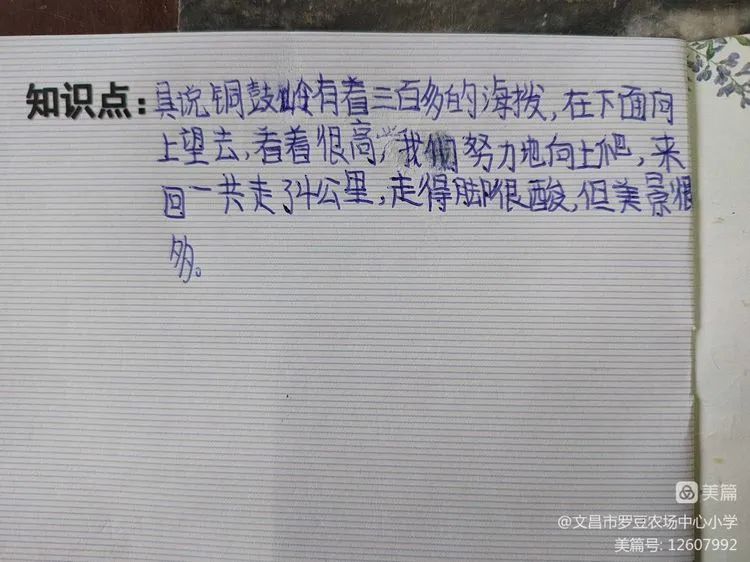 知识点：具说铜鼓岭有着三百多的海拨，在下面向
上望去，看着很高，我们努力地向上爬，来
回一共走了4公里，走得脚很酸，但美景很
多。
美篇
@文昌市罗豆农场中心小学
美篇号: 12607992